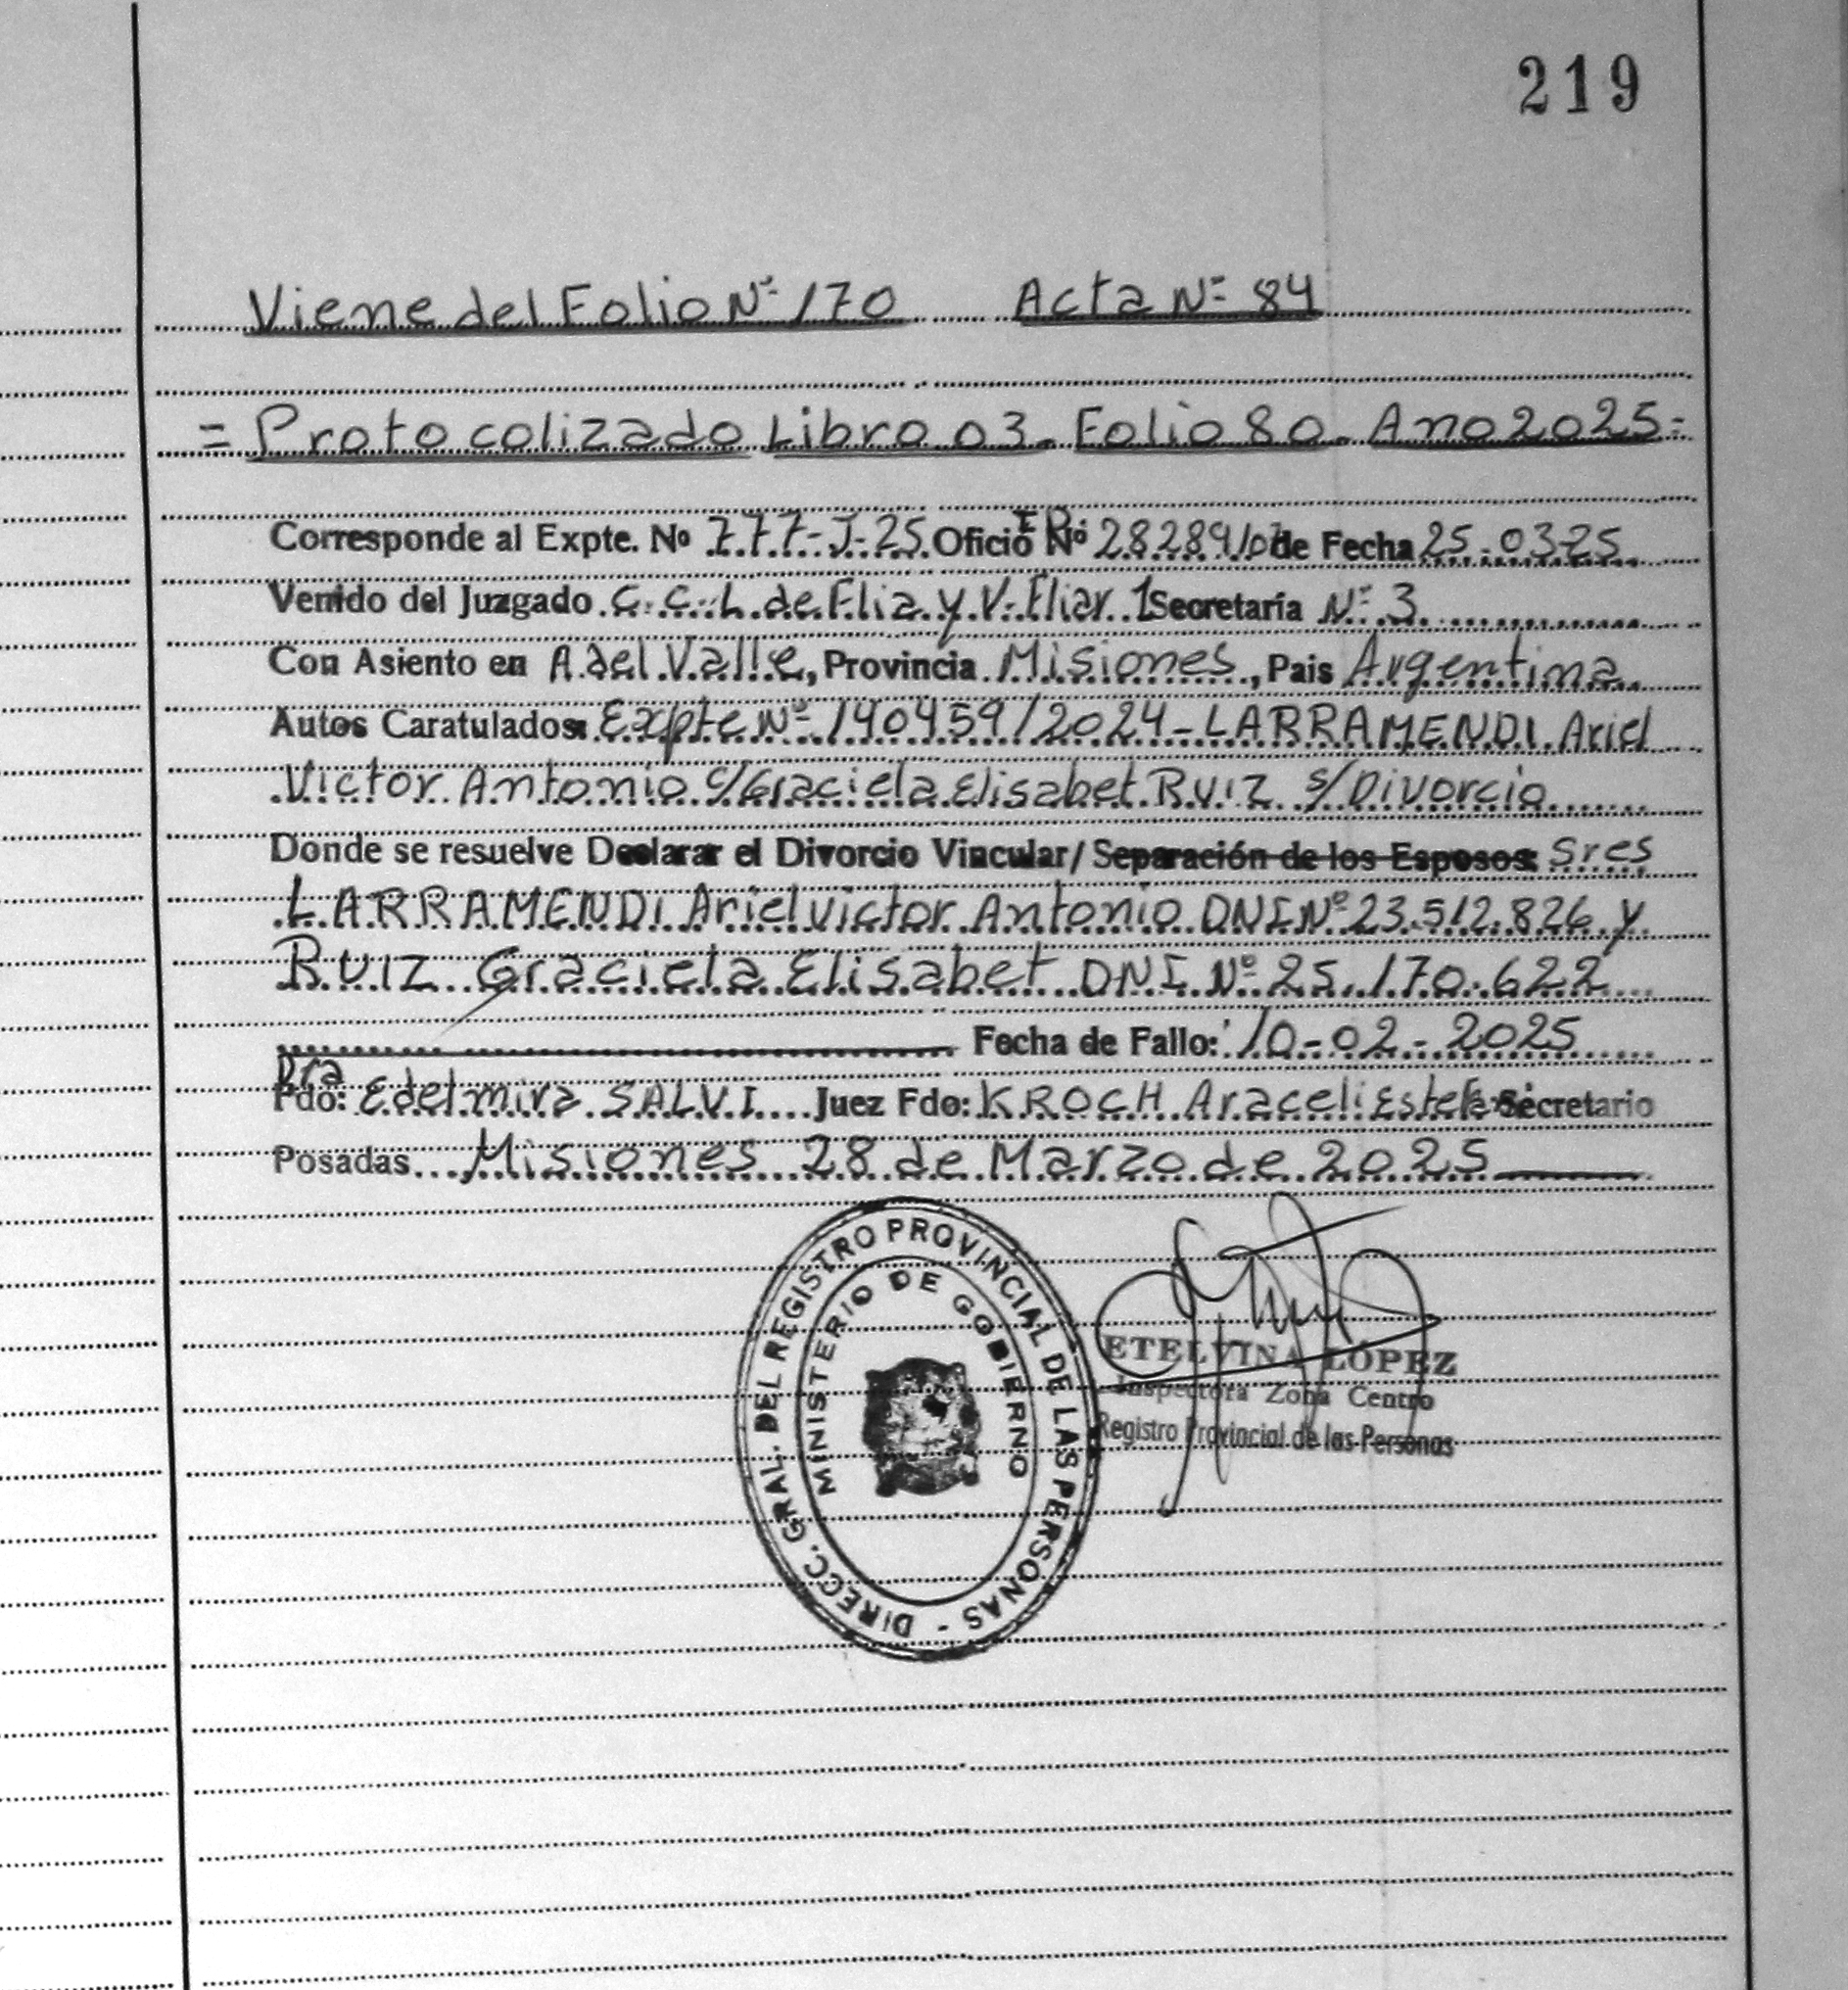 219
Viene del Folio Nº 170 Acta Nº 84
= Protocolizado Libro 03 - Folio 80 - Ano 2025 =
Corresponde al Expte. Nº 777-J-25 Oficio Nº de Fecha 25-03-25
Venido del Juzgado C. C. L. de Flia y V. Fliar 1 Secretaría Nº 3
Con Asiento en A. del Valle, Provincia Misiones, Pais Argentina
Autos Caratulados: Expte Nº 140459/2024 - LARRAMENDI Ariel
Victor Antonio c/Graciela Elisabet RUIZ s/Divorcio
Donde se resuelve Declarar el Divorcio Vincular/ Separación de los Esposos: Sres
LARRAMENDI Ariel Victor Antonio DNI Nº 23.512.826 y
RUIZ Graciela Elisabet DNI Nº 25.170.622
Fecha de Fallo: 10-02-2025
Dra
Fdo: Edelmira SALVI Juez Fdo: KROCH Araceli Estela Secretario
Posadas Misiones 28 de Marzo de 2025
DIRECC. GRAL. DEL REGISTRO PROVINCIAL DE LAS PERSONAS -
MINISTERIO DE GOBIERNO
ETELVINA LÓPEZ
Inspectora Zona Centro
Registro Provincial de las Personas